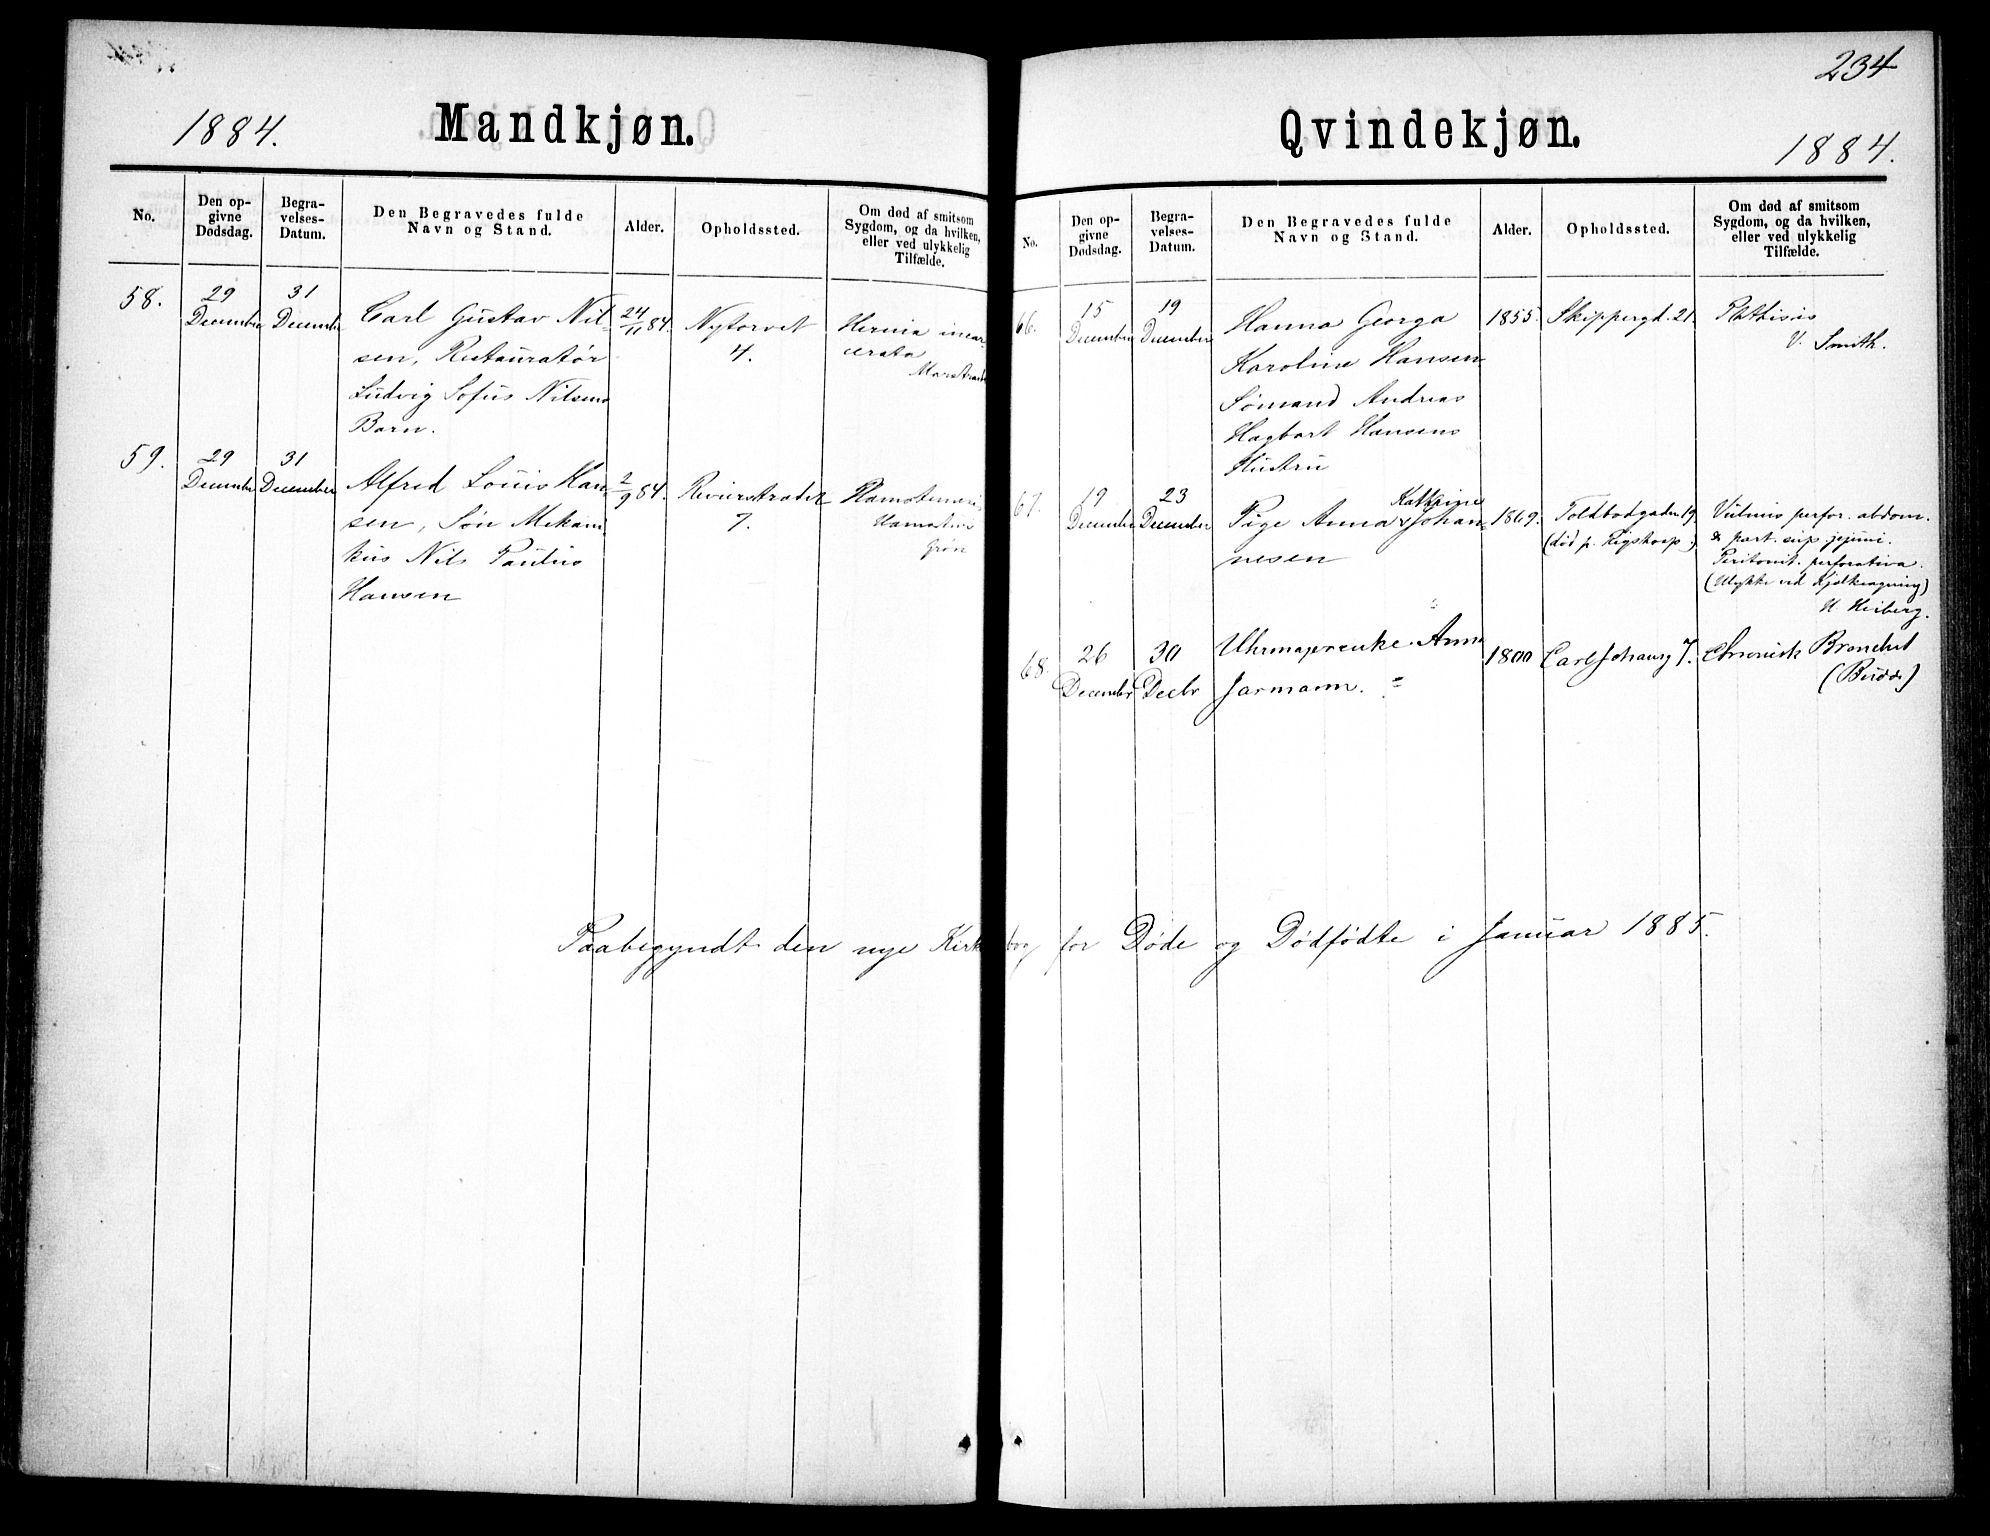 234
1884. Mandkjøn.
No.
Den op-
givne
Dødsdag.
Begra-
velses-
Datum.
Den Begravedes fulde
Navn og Stand.
Alder.
Opholdssted.
Om død af smitsom
Sygdom, og da hvilken,
eller ved ulykkelig
Tilfælde.
58.
29
December
31
December
Carl Gustav Nil-
sen, Restauratør
Ludvig Sofus Nilsens
Barn.
24/11 84.
Nytorvet
4.
Hernia incar-
cerata
59.
29
December
31
December
Alfred Louis Han-
sen, Søn Mekani-
kus Nils Paulus
Hansen
2/9 84.
7.
Grøn
Qvindekjøn. 1884.
No.
Den op-
givne
Dødsdag.
Begra-
velses-
Datum.
Den Begravedes fulde
Navn og Stand.
Alder.
Opholdssted.
Om død af smitsom
Sygdom, og da hvilken,
eller ved ulykkelig
Tilfælde.
66.
15
December
19
December
Hanna Georga
Karoline Hansen
Sømand Andreas
Hagbart Hansens
Hustru
1855.
Skippergd. 21.
Phthisis
V. Smith.
67.
19
December
23
December
Kathrine
Pige Anna Johan-
nesen
1869.
Toldbodgaden 19
(død p. Rigshosp.)
perfor. abdom.
& part. sup. jejuni.
Peritonit. perforativa.
(Ulykke ved Kjelkeagning)
H. Heiberg.
68.
26
December
30
Decbr
Uhrmagrenke Anna
Jarmann.
1800
Carl Johansg 7.
Chronisk Bronchit
(Budde)
Paabegyndt den nye Kirkebog for Døde og Dødfødte i Januar 1885.